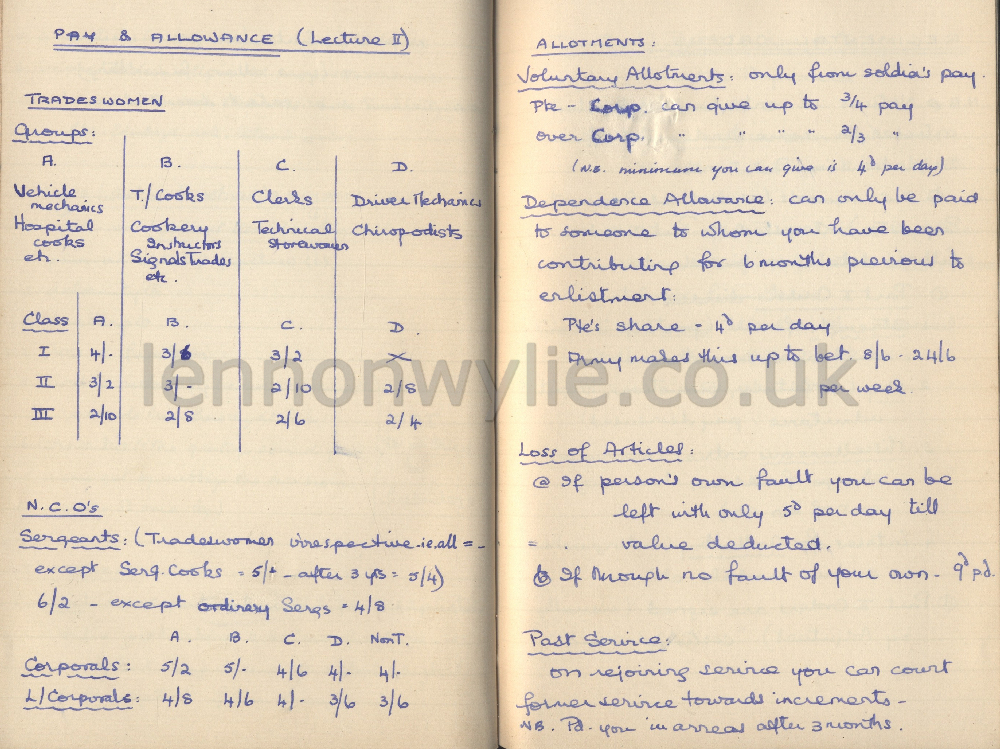 PAY & ALLOWANCE (Lecture II)
TRADESWOMEN
Groups:
A. B. C. D.
Vehicle mechanics T./Cooks Clerks Driver Mechanics
Hospital cooks Cookery Instructors Technical Storewomen Chiropodists
etc. Signals Trades
etc.
Class A. B. C. D.
I 4/- 3/6 3/2 X
II 3/2 3/- 2/10 2/8
III 2/10 2/8 2/6 2/4
N.C.O's
Sergeants: (Tradeswomen irrespective - ie. all = -
except Serg. Cooks = 5/- - after 3 yrs = 5/4)
6/2 - except ordinary Sergs = 4/8
A. B. C. D. Non T.
Corporals: 5/2 5/- 4/6 4/- 4/-
L/Corporals: 4/8 4/6 4/- 3/6 3/6
ALLOTMENTS:
Voluntary Allotments: only from soldia's pay.
Pte - Corp. can give up to 3/4 pay
over Corp. " " " " 2/3 "
(N.B. minimum you can give is 4d per day)
Dependence Allowance: can only be paid
to someone to whom you have been
contributing for 6 months previous to
enlistment.
Pte's share - 4d per day
Army makes this up to bet. 8/6 - 24/6
per week.
Loss of Articles:
@ If person's own fault you can be
left with only 5d per day till
= . value deducted.
b If through no fault of your own - 9d pd.
Past Service:
on rejoining service you can count
former service towards increments -
NB. Pd. you in arrears after 3 months.
lennonwylie.co.uk